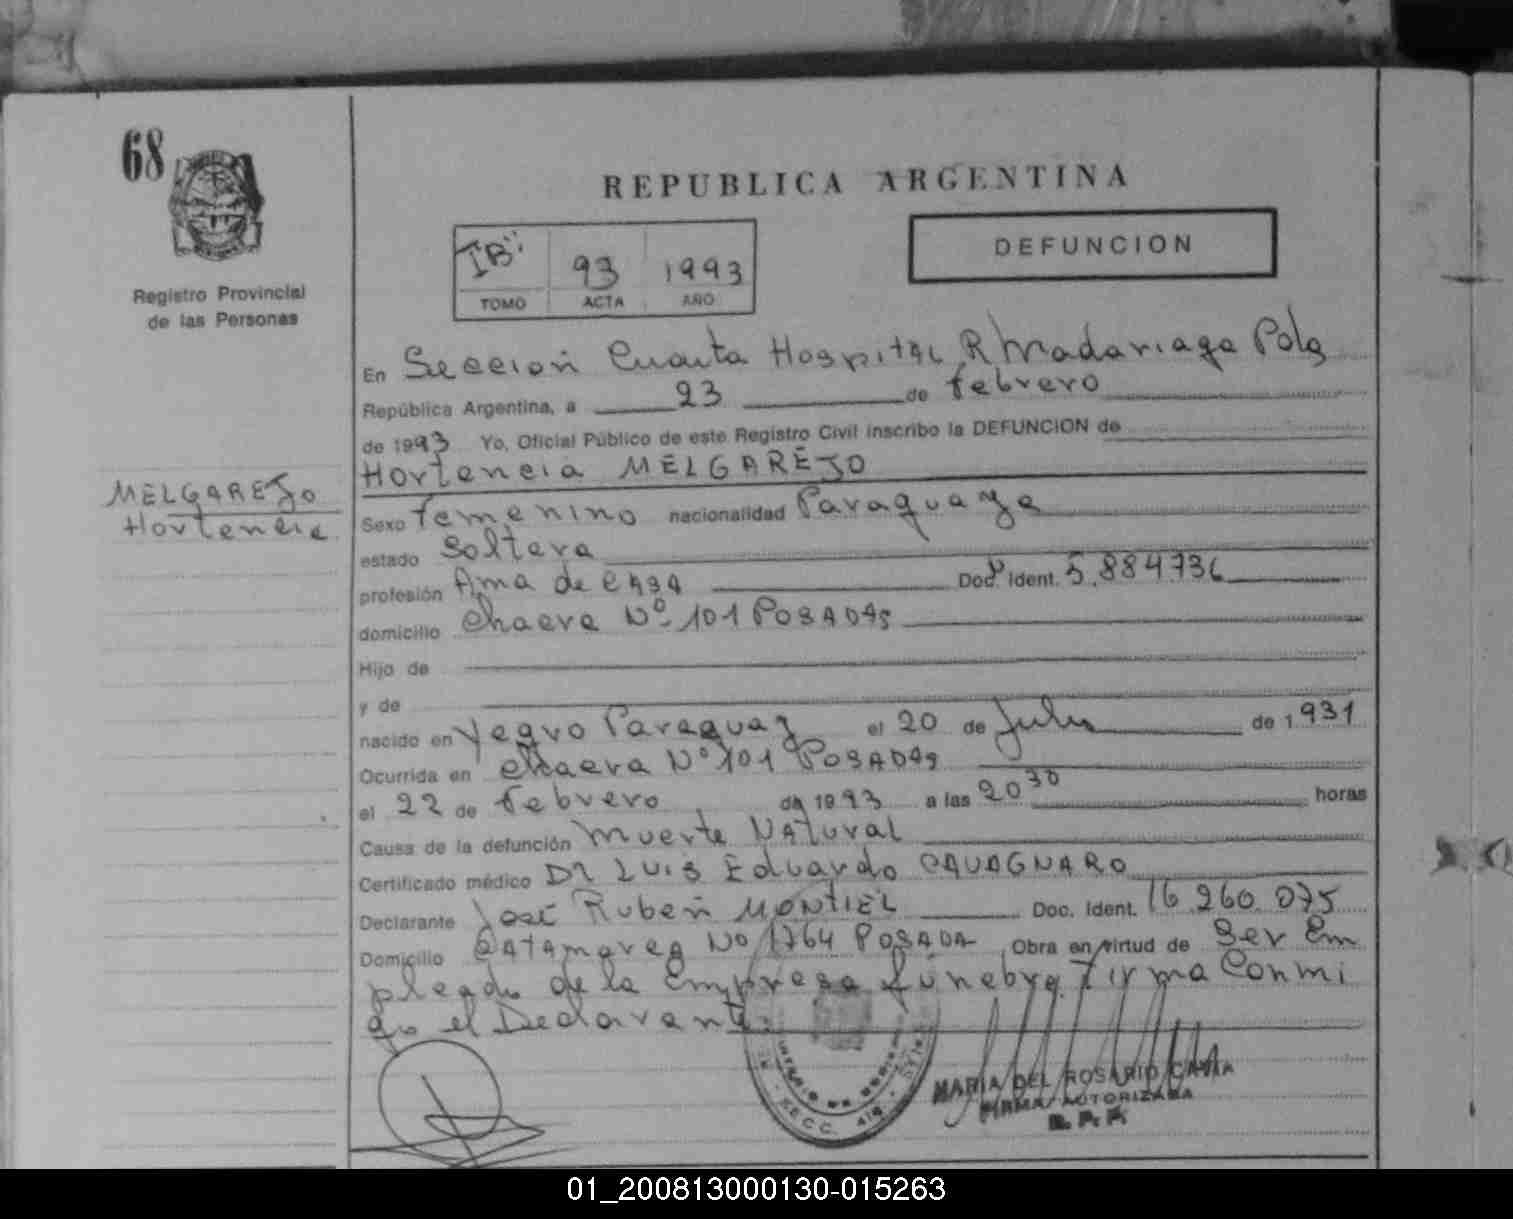 68
REPUBLICA ARGENTINA
DEFUNCION
93 1993
TOMO ACTA AÑO
Registro Provincial
de las Personas
En Seccion Cuarta Hospital R Madariaga Pdas
República Argentina, a 23 de febrero
de 1993 Yo, Oficial Público de este Registro Civil inscribo la DEFUNCION de
Hortencia MELGAREJO
MELGAREJO
Hortencia
Sexo femenino nacionalidad Paraguaya
estado Soltera
profesión Ama de casa Doc. Ident. 5.884736
domicilio Chacra Nº 101 POSADAS
Hijo de
y de
nacido en Yegro Paraguay el 20 de Julio de 1.931
Ocurrida en Chacra Nº 101 POSADAS
el 22 de febrero de 1993 a las 20 30 horas
Causa de la defunción muerte NATural
Certificado médico Dr LUIS Eduardo CAVAGNARO
Declarante José Ruben MONTIEL Doc. Ident. 16.260.075
Domicilio CATAmarca Nº 1764 POSADA Obra en virtud de Ser Em
pleado de la Empresa fúnebre. Firma Conmi
go el Declarante.
MARIA DEL ROSARIO
FIRMA AUTORIZADA
R.P.P.
01_200813000130-015263